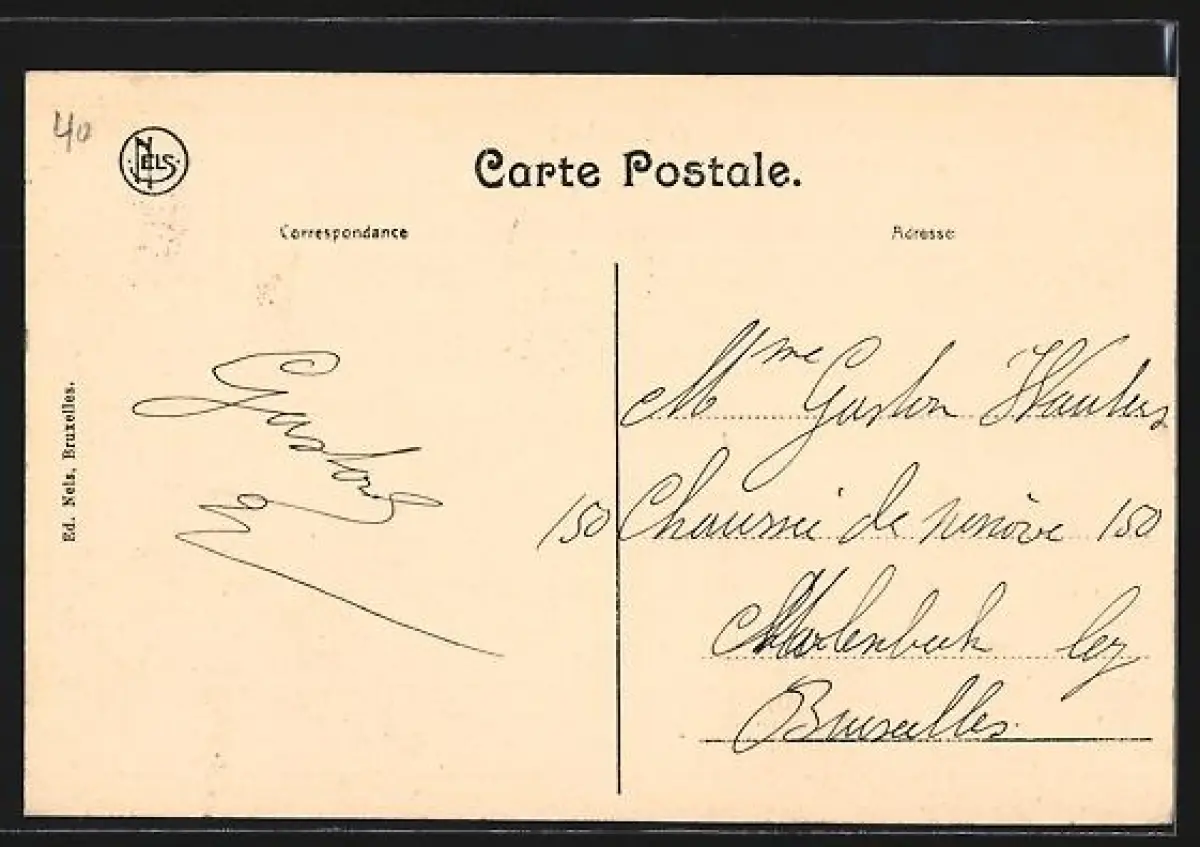 40
NELS
Carte Postale.
Correspondance
Adresse
Ed. Nels, Bruxelles.
Gaston
Mme Gaston Wauters
150 Chaussée de ninove 150
Molenbeek lez
Bruxelles